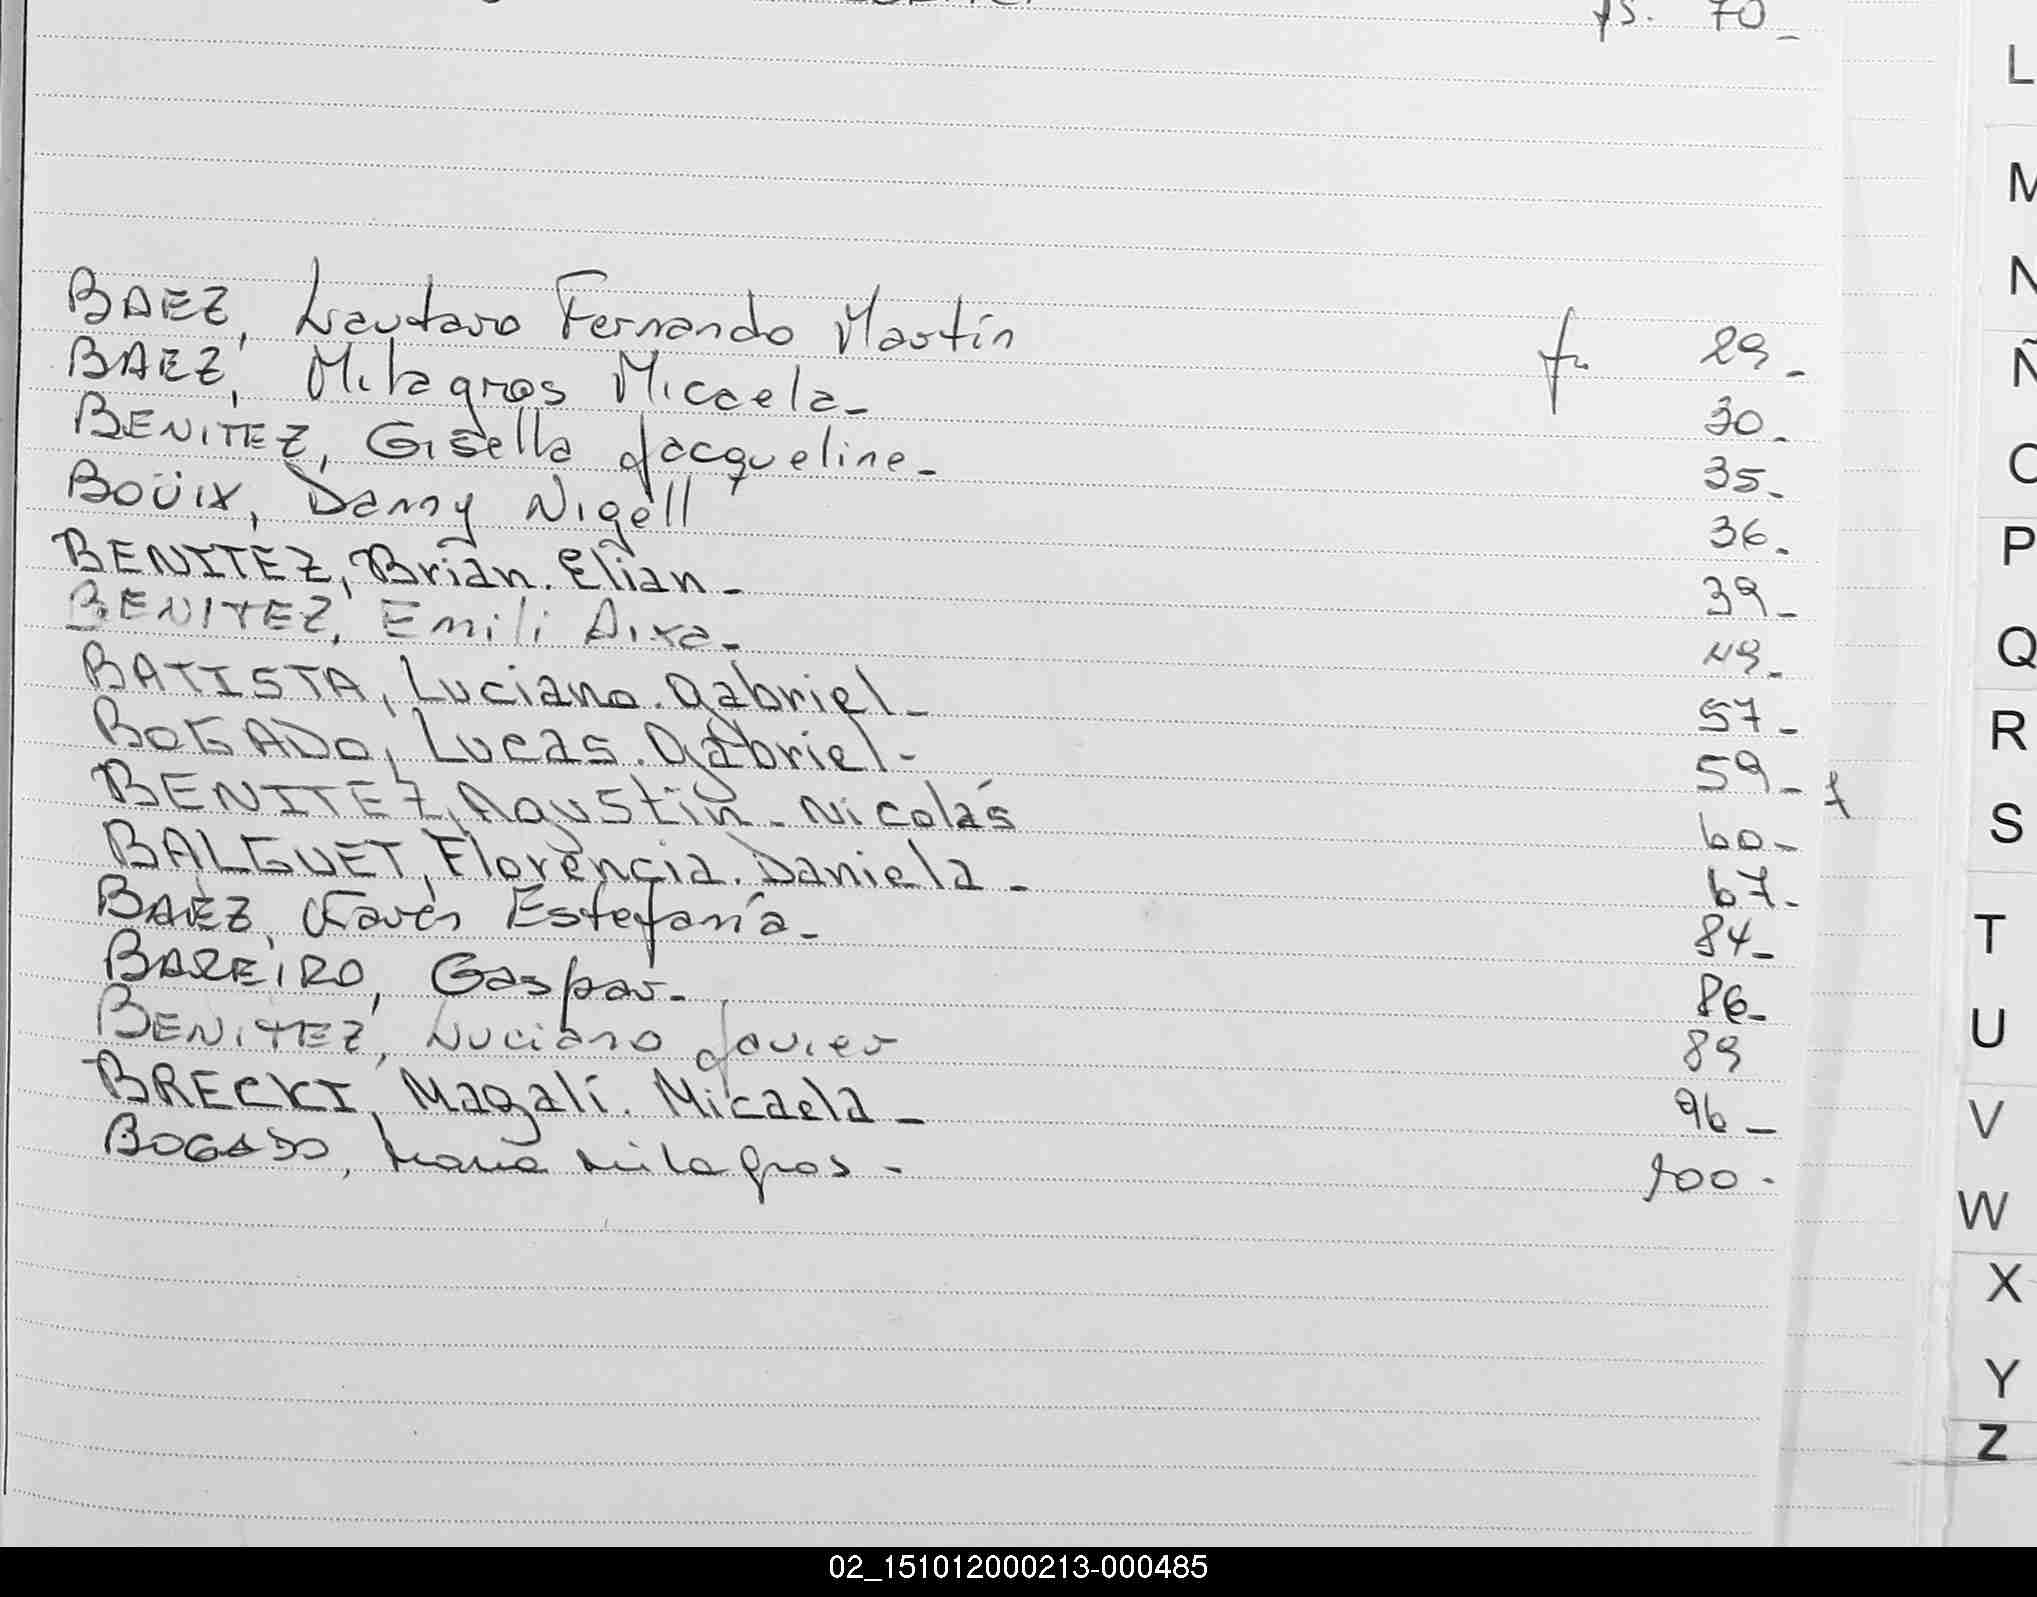 fs. 70_
BAEZ, Lautaro Fernando Martín f. 29_
BAEZ, Milagros Micaela_ 30_
BENITEZ, Gisella Jacqueline_ 35_
BOÜIX, Danny Nigell 36_
BENITEZ, Brian. Elian_ 39_
BENITEZ, Emili Aixa_ 49_
BATISTA, Luciano. Gabriel_ 57_
BOGADO, Lucas. Gabriel_ 59_
BENITEZ, Agustin_ Nicolás 60_
BALGUET, Florencia. Daniela_ 67_
BAEZ, Karen Estefanía_ 84_
BAREIRO, Gaspar_ 86_
BENITEZ, Luciano Javier 89
BRECKI, Magalí. Micaela_ 96_
BOGADO, Milagros_ 100_
L
M
N
Ñ
O
P
Q
R
S
T
U
V
W
X
Y
Z
02_151012000213-000485